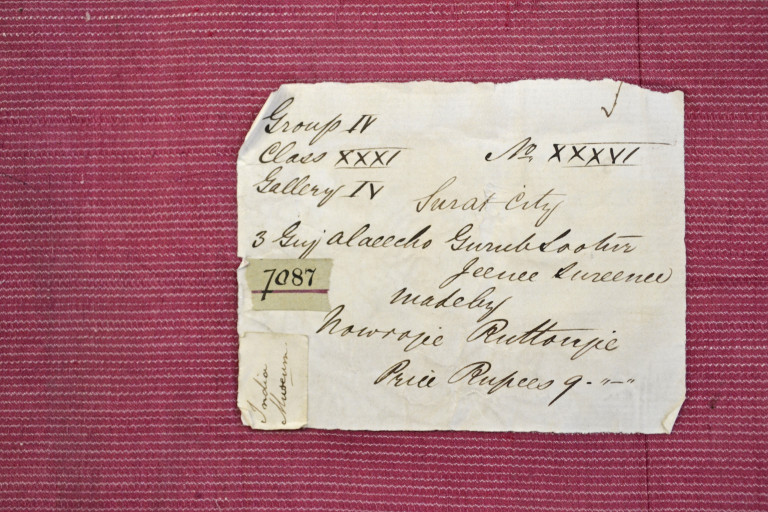 Group IV
Class XXXI
No. XXXVI
Gallery IV
Surat City
3 Guj Alaeecho Gurub Sootur
Jeenee Sureenee
7087
made by
Nowrojie Ruttonjie
Price Rupees 9-"-"
India
Museum